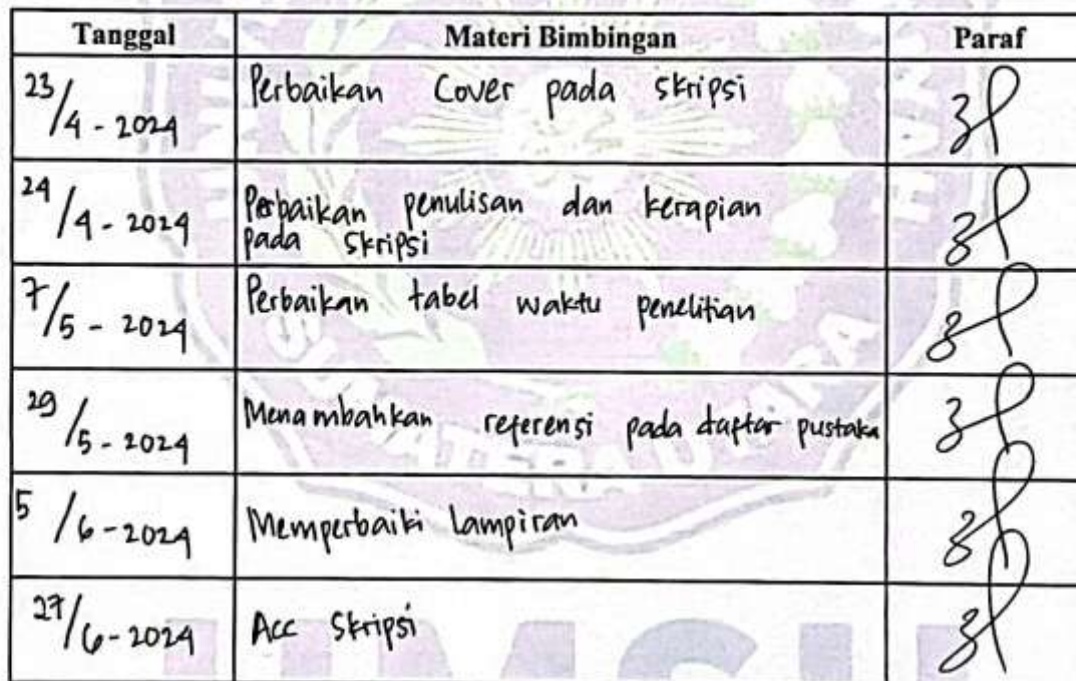 Tanggal Materi Bimbingan Paraf
23/4-2024 Perbaikan Cover pada skripsi
24/4-2024 Perbaikan penulisan dan kerapian
pada skripsi
7/5-2024 Perbaikan tabel waktu penelitian
29/5-2024 Menambahkan referensi pada daftar pustaka
5/6-2024 Memperbaiki Lampiran
27/6-2024 Acc Skripsi
UMSU